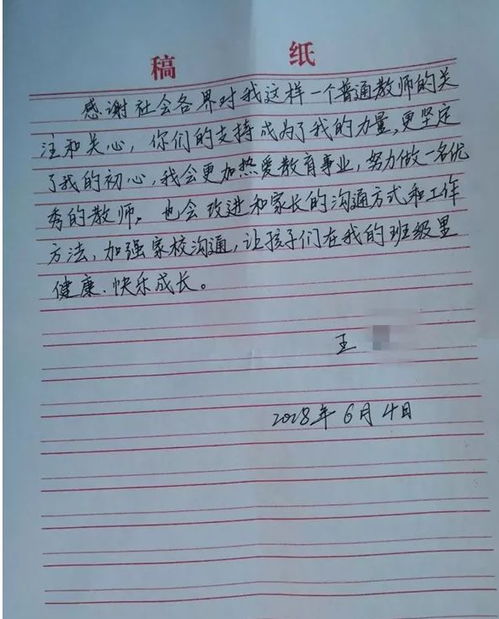 稿 纸
感谢社会各界对我这样一个普通教师的关
注和关心，你们的支持成为了我的力量，更坚定
了我的初心，我会更加热爱教育事业，努力做一名优
秀的教师。也会改进和家长的沟通方式和工作
方法，加强家校沟通，让孩子们在我的班级里
健康、快乐成长。
王
2028年6月4日